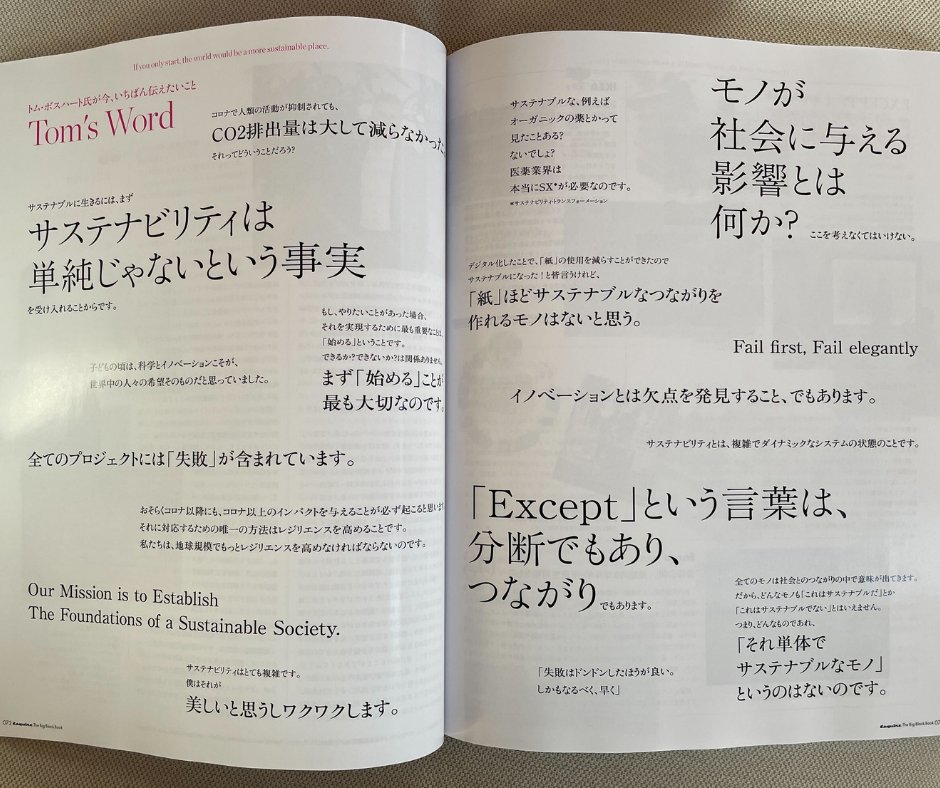 If you only start, the world would be a more sustainable place.
トム・ボスハート氏が今、いちばん伝えたいこと
Tom's Word
コロナで人類の活動が抑制されても、
CO2排出量は大して減らなかった。
それってどういうことだろう?
サステナブルに生きるには、まず
サステナビリティは
単純じゃないという事実
を受け入れることからです。
もし、やりたいことがあった場合、
それを実現するために最も重要なことは、
「始める」ということです。
できるか?できないか?は関係ありません。
まず「始める」ことが
最も大切なのです。
子どもの頃は、科学とイノベーションこそが、
世界中の人々の希望そのものだと思っていました。
全てのプロジェクトには「失敗」が含まれています。
おそらくコロナ以降にも、コロナ以上のインパクトを与えることが必ず起こると思います
それに対応するための唯一の方法はレジリエンスを高めることです。
私たちは、地球規模でもっとレジリエンスを高めなければならないのです。
Our Mission is to Establish
The Foundations of a Sustainable Society.
サステナビリティはとても複雑です。
僕はそれが
美しいと思うしワクワクします。
072 Esquire The Big Black Book
サステナブルな、例えば
オーガニックの薬とかって
見たことある?
ないでしょ?
医薬業界は
本当にSX*が必要なのです。
*サステナビリティ・トランスフォーメーション
モノが
社会に与える
影響とは
何か?
ここを考えなくてはいけない。
デジタル化したことで、「紙」の使用を減らすことができたので
サステナブルになった!と皆言うけれど、
「紙」ほどサステナブルなつながりを
作れるモノはないと思う。
Fail first, Fail elegantly
イノベーションとは欠点を発見すること、でもあります。
サステナビリティとは、複雑でダイナミックなシステムの状態のことです。
「Except」という言葉は、
分断でもあり、
つながり
でもあります。
全てのモノは社会とのつながりの中で意味が出てきます。
だから、どんなモノも「これはサステナブルだ」とか
「これはサステナブルでない」とはいえません。
つまり、どんなものであれ、
「それ単体で
サステナブルなモノ」
というのはないのです。
「失敗はドンドンしたほうが良い。
しかもなるべく、早く」
Esquire The Big Black Book 07